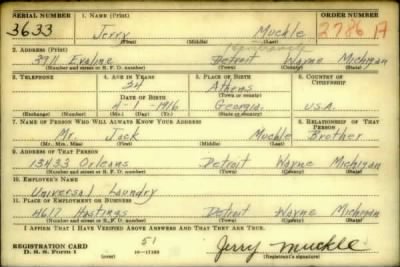 SERIAL NUMBER 1. NAME (Print) ORDER NUMBER
3633 Jerry Muckle 2786 A
(First) (Middle) (Last)
2. ADDRESS (Print)
3911 Evaline Detroit Wayne Michigan
(Number and street or R. F. D. number) (Town) (County) (State)
3. TELEPHONE 4. AGE IN YEARS 5. PLACE OF BIRTH 6. COUNTRY OF CITIZENSHIP
24 Athens
DATE OF BIRTH (Town or county)
4-1-1916 Georgia U.S.A.
(Exchange) (Number) (Mo.) (Day) (Yr.) (State or country)
7. NAME OF PERSON WHO WILL ALWAYS KNOW YOUR ADDRESS 8. RELATIONSHIP OF THAT PERSON
Mr. Jack Muckle Brother
(Mr., Mrs., Miss) (First) (Middle) (Last)
9. ADDRESS OF THAT PERSON
13433 Orleans Detroit Wayne Michigan
(Number and street or R. F. D. number) (Town) (County) (State)
10. EMPLOYER'S NAME
Universal Laundry
11. PLACE OF EMPLOYMENT OR BUSINESS
4617 Hastings Detroit Wayne Michigan
(Number and street or R. F. D. number) (Town) (County) (State)
I AFFIRM THAT I HAVE VERIFIED ABOVE ANSWERS AND THAT THEY ARE TRUE.
51
REGISTRATION CARD Jerry Muckle
D. S. S. Form 1 16-17105 (Registrant's signature)